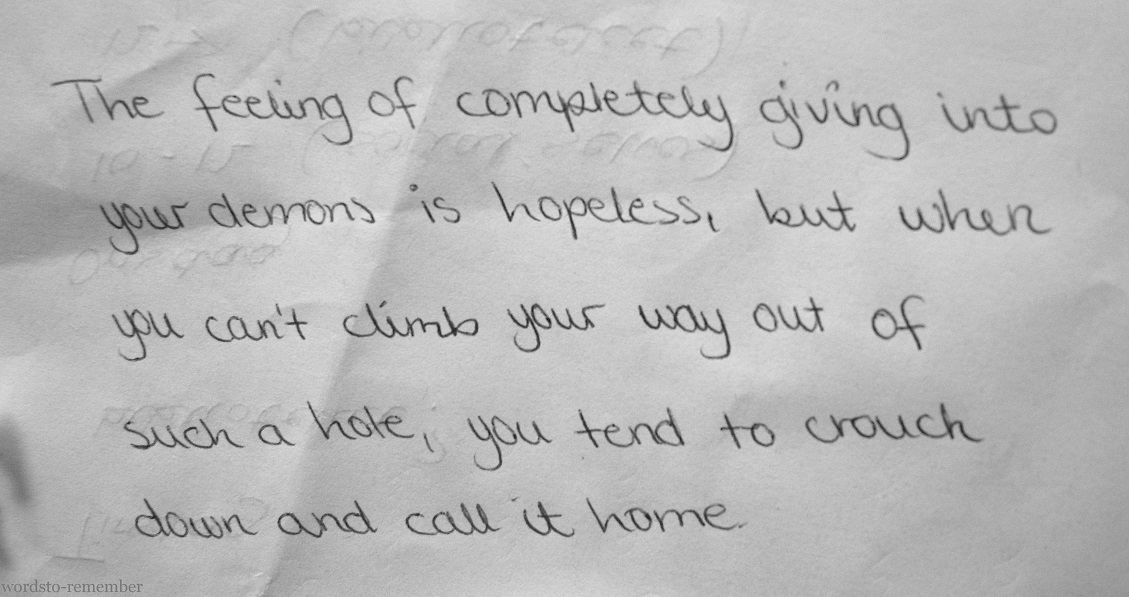 The feeling of completely giving into
your demons is hopeless, but when
you can't climb your way out of
such a hole, you tend to crouch
down and call it home.
wordsto-remember